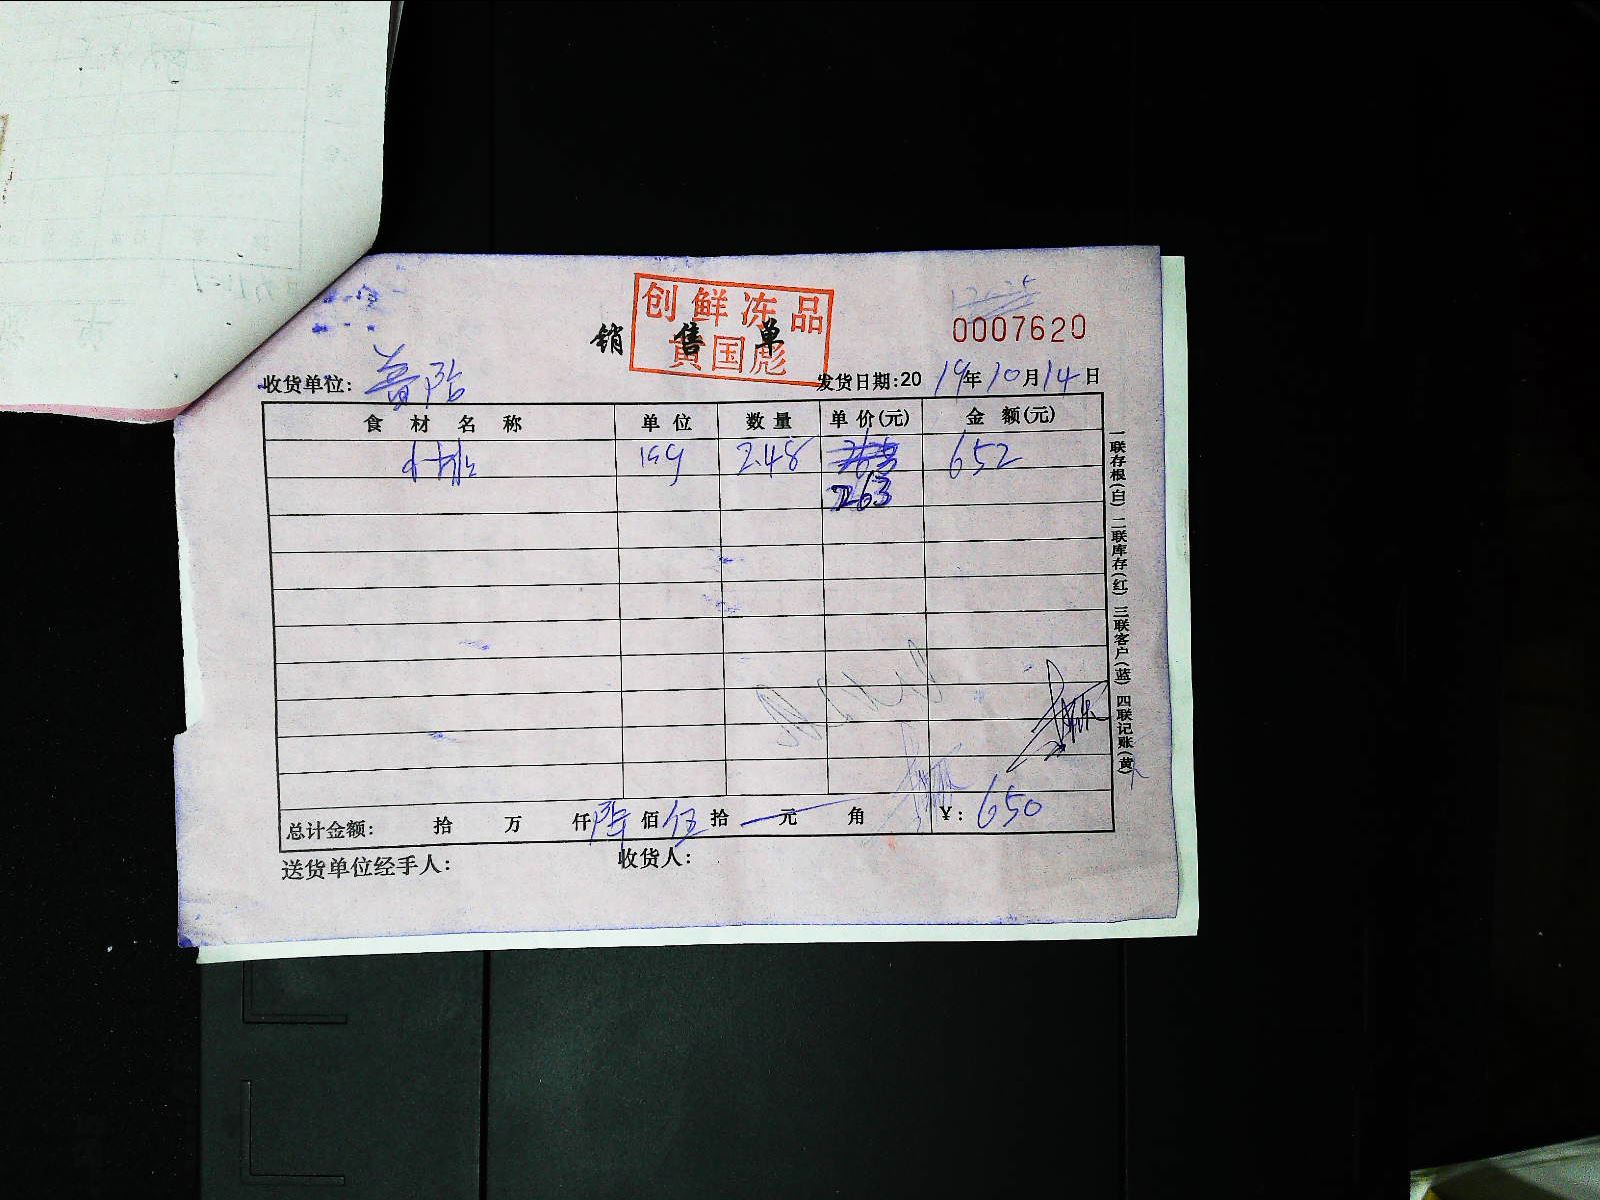 创鲜冻品
黄国彪
销售单
0007620
收货单位:
发货日期:2019年10月14日
食材名称 单位 数量 单价(元) 金额(元)
小排 2.48 652
263
总计金额: 拾 万 仟 陆 佰 伍 拾 元 角 ¥: 650
送货单位经手人: 收货人:
一联存根(白) 二联库存(红) 三联客户(蓝) 四联记账(黄)